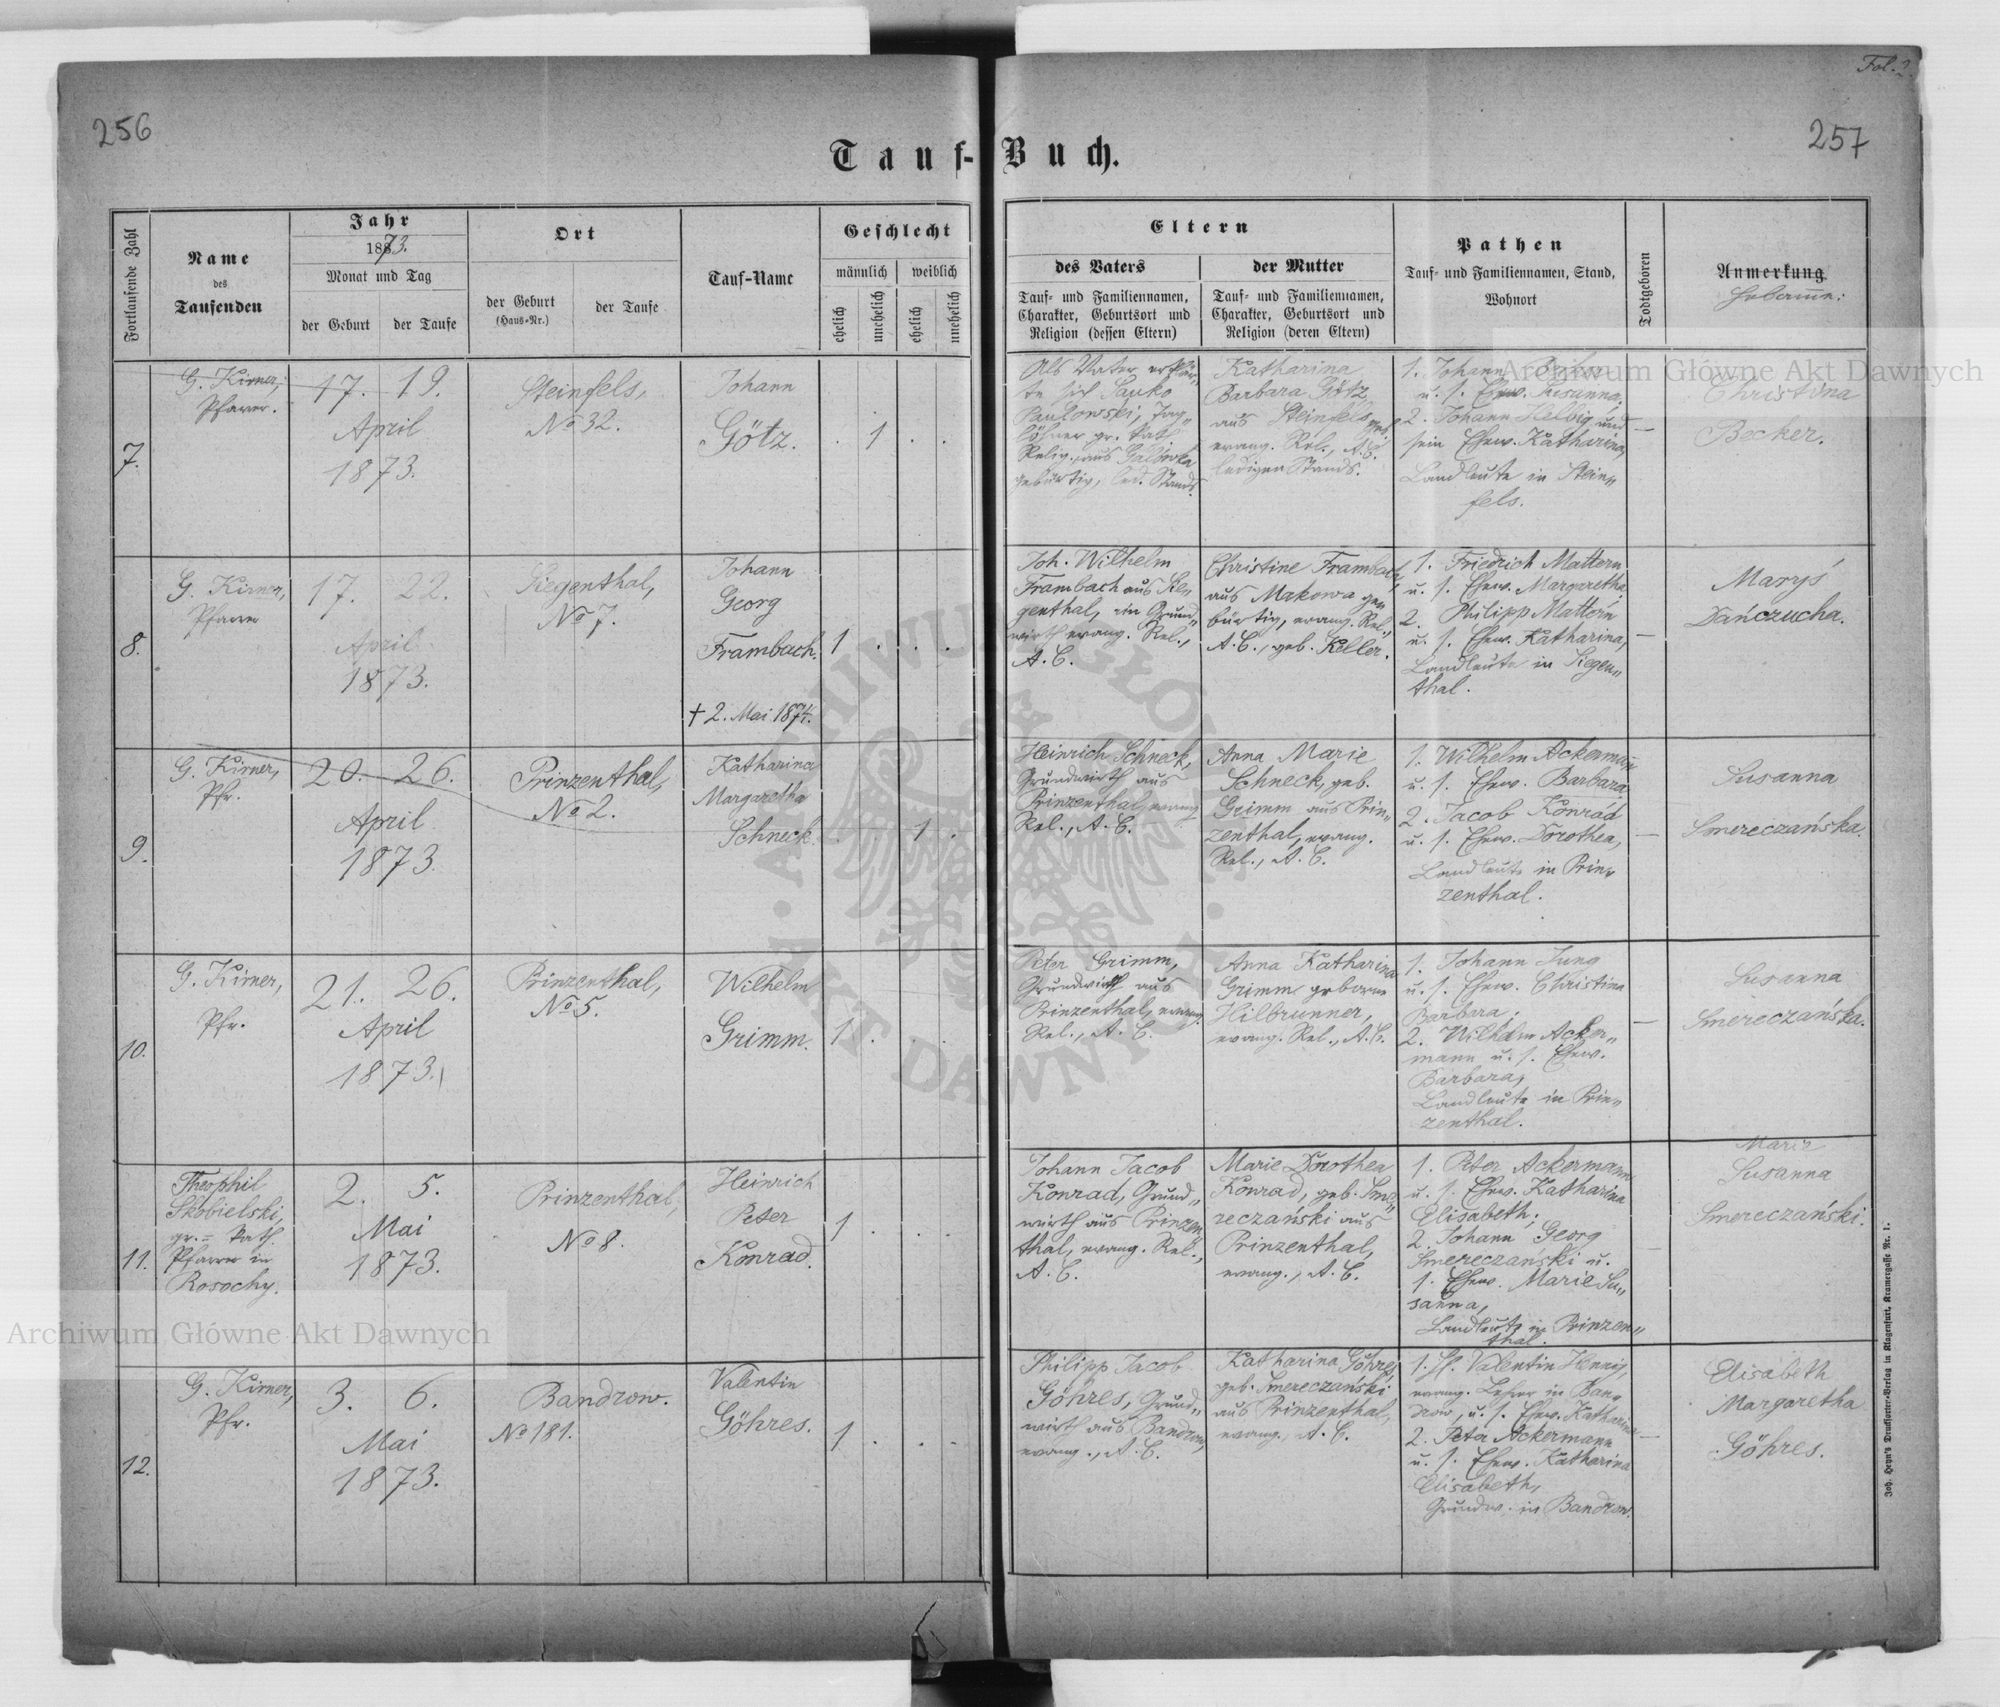 Fol. 2.
256
257
Tauf-Buch.
Fortlaufende Zahl
Name
des
Taufenden
Jahr
1873.
Monat und Tag
der Geburt
der Taufe
Ort
der Geburt
(Haus-Nr.)
der Taufe
Tauf-Name
Geschlecht
männlich
weiblich
ehelich
unehelich
ehelich
unehelich
Eltern
des Vaters
Tauf- und Familiennamen,
Charakter, Geburtsort und
Religion (dessen Eltern)
der Mutter
Tauf- und Familiennamen,
Charakter, Geburtsort und
Religion (deren Eltern)
Pathen
Tauf- und Familiennamen, Stand,
Wohnort
Todtgeboren
Anmerkung
Hebamme:
7.
G. Kirner,
Pfarrer.
17. 19.
April
1873.
Steinfels,
No 32.
Johann
Götz.
. 1 . .
Als Vater erklär-
te sich Sauko
Pawłowski, Tag-
löhner gr. kath.
Relig., aus Galówka
gebürtig, led. Stands.
Katharina
Barbara Götz,
aus Steinfels, geb.
evang. Rel., A. C.
ledigen Stands.
1. Johann
u. s. Ehew. Susanna;
2. Johann Helbig und
sein Ehew. Katharina,
Landleute in Stein-
fels.
—
Christina
Becker.
8.
G. Kirner,
Pfarrer
17. 22.
April
1873.
Siegenthal,
No 7.
Johann
Georg
Frambach.
† 2. Mai 1874.
1 . . .
Joh. Wilhelm
Frambach aus Sie-
genthal, ein Grund-
wirth evang. Rel.,
A. C.
Christine Frambach,
aus Makowa ge-
bürtig, evang. Rel.,
A. C., geb. Keller.
1. Friedrich Mattern
u. s. Ehew. Margaretha;
2. Philipp Mattern
u. s. Ehew. Katharina,
Landleute in Siegen-
thal.
—
Maryś
Dańczucha.
9.
G. Kirner,
Pfr.
20. 26.
April
1873.
Prinzenthal,
No 2.
Katharina
Margaretha
Schneck.
. . 1 .
Heinrich Schneck,
Grundwirth aus
Prinzenthal, evang.
Rel., A. C.
Anna Marie
Schneck, geb.
Grimm aus Prin-
zenthal, evang.
Rel., A. C.
1. Wilhelm Ackermann
u. s. Ehew. Barbara.
2. Jacob Konrad
u. s. Ehew. Dorothea,
Landleute in Prin-
zenthal.
—
Susanna
Smereczańska.
10.
G. Kirner,
Pfr.
21. 26.
April
1873.
Prinzenthal,
No 5.
Wilhelm
Grimm.
1 . . .
Peter Grimm,
Grundwirth aus
Prinzenthal, evang.
Rel., A. C.
Anna Katharina
Grimm geborne
Hilbrunner,
evang. Rel., A. C.
1. Johann Jung
u. s. Ehew. Christina
Barbara;
2. Wilhelm Acker-
mann u. s. Ehew.
Barbara,
Landleute in Prin-
zenthal.
—
Susanna
Smereczańska.
11.
Theophil
Skobielski,
gr.= kath.
Pfarrer in
Rosochy.
2. 5.
Mai
1873.
Prinzenthal,
No 8.
Heinrich
Peter
Konrad.
1 . . .
Johann Jacob
Konrad, Grund-
wirth aus Prinzen-
thal, evang. Rel.,
A. C.
Marie Dorothea
Konrad, geb. Sme-
reczański aus
Prinzenthal,
evang., A. C.
1. Peter Ackermann
u. s. Ehew. Katharina
Elisabeth;
2. Johann Georg
Smereczański u.
s. Ehew. Marie Su-
sanna,
Landleute in Prinzen-
thal.
—
Marie
Susanna
Smereczański.
12.
G. Kirner,
Pfr.
3. 6.
Mai
1873.
Bandrow.
No 181.
Valentin
Göhres.
1 . . .
Philipp Jacob
Göhres, Grund-
wirth aus Bandrow,
evang., A. C.
Katharina Göhres,
geb. Smereczański
aus Prinzenthal,
evang., A. C.
1. H. Valentin Hennig,
evang. Lehrer in Ban-
drow, u. s. Ehew. Katharina
2. Peter Ackermann
u. s. Ehew. Katharina
Elisabeth,
Grundw. in Bandrow.
—
Elisabeth
Margaretha
Göhres.
Joh. Heyn's Drucksorten-Verlag in Klagenfurt, Kramergasse Nr. 1.
Archiwum Główne Akt Dawnych
Archiwum Główne Akt Dawnych
ARCHIWUM GŁÓWNE · AKT DAWNYCH ·